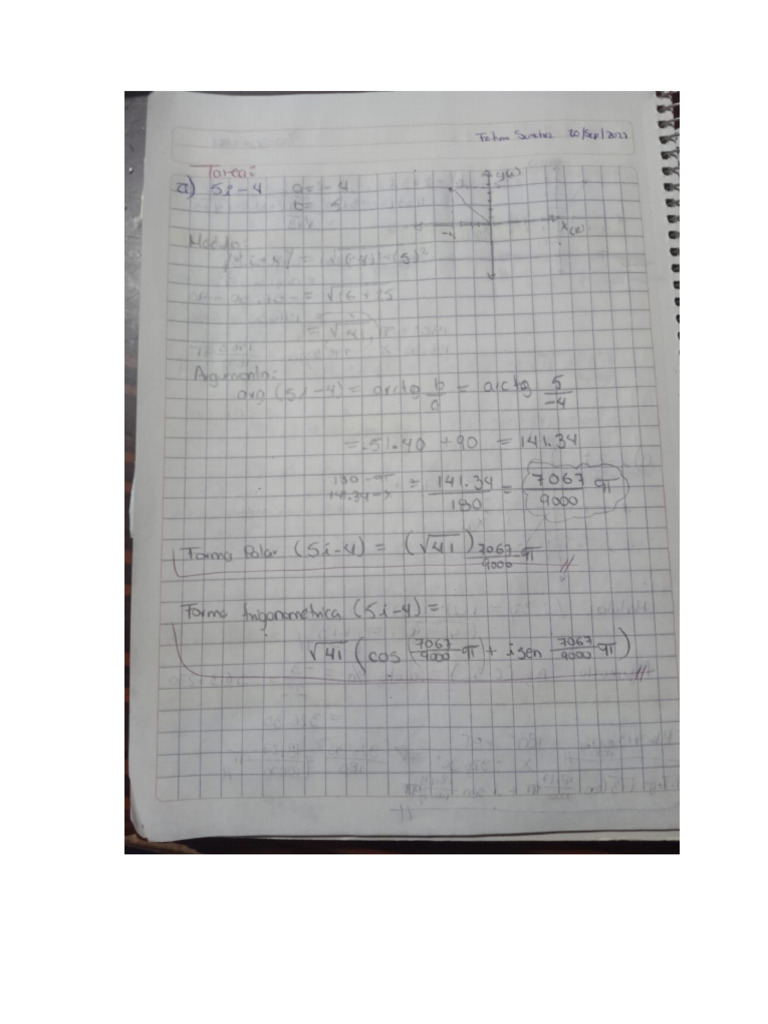 20/Sep/2022
Tarea:
a) 5i-4 a=-4 y(i)
b= 5
-4 x(R)
Modulo:
|5i-4| = √(-4)²+(5)²
= √16+25
= √41
Argumento:
arg (5i-4) = arctg b/a = arctg 5/-4
= -51.40 +90 = 141.34
180-π
141.34-x = 141.34/180 = 7067/9000 π
Forma Polar (5i-4) = (√41) 7067/9000 π //
Forma trigonométrica (5i-4) =
√41 (cos 7067/9000 π + i sen 7067/9000 π) //